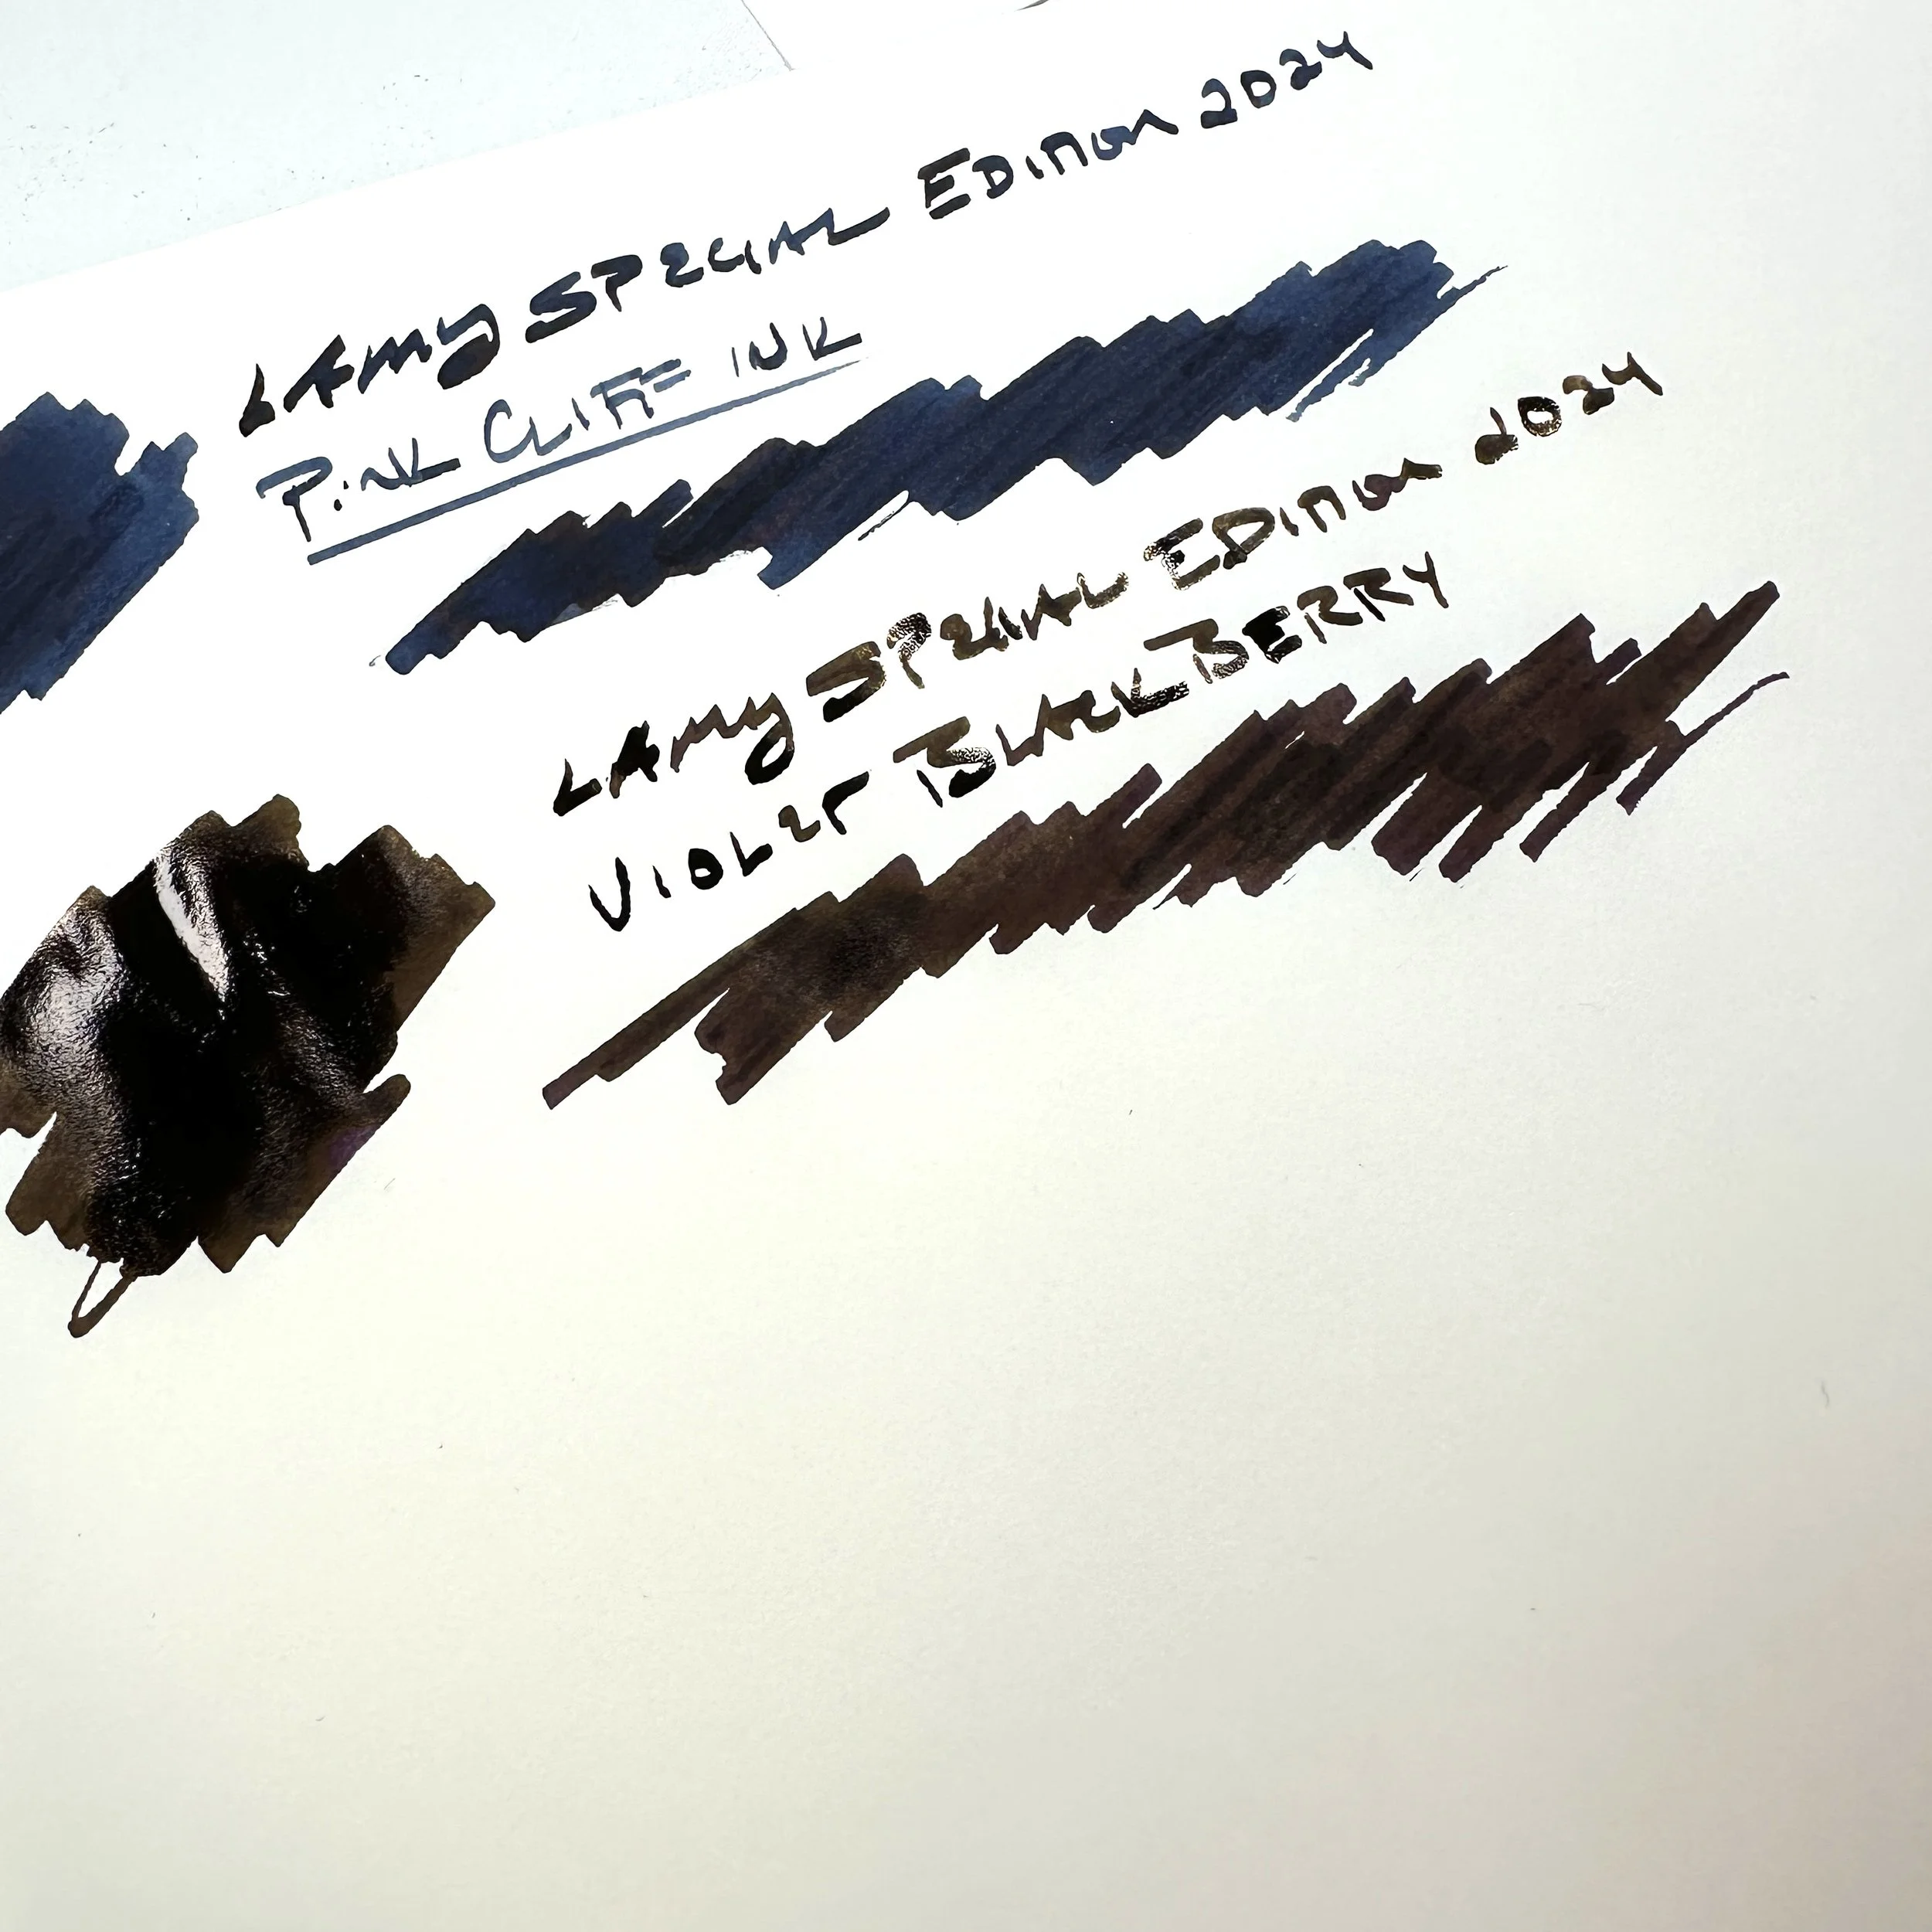 LAMY SPECIAL EDITION 2024
PINK CLIFF INK
LAMY SPECIAL EDITION 2024
VIOLET BLACKBERRY